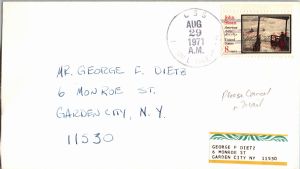 USS
AUG
29
1971
A.M.
John
Sloan
American
United
States
8
MR. GEORGE F. DIETZ
6 MONROE ST.
GARDEN CITY, N.Y.
11530
Please Cancel
GEORGE F DIETZ
6 MONROE ST
GARDEN CITY NY 11530